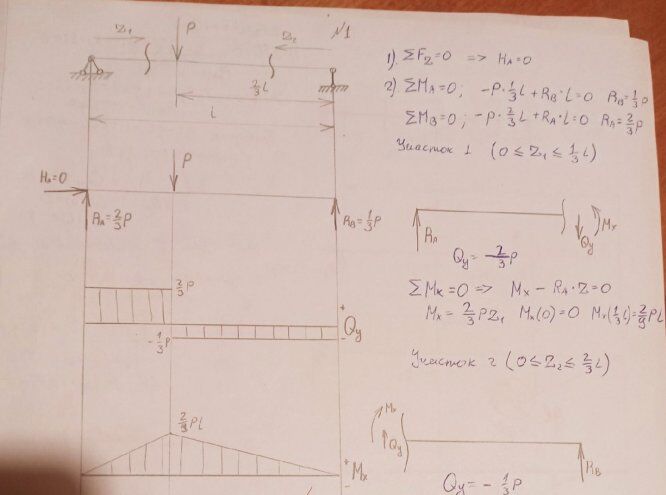 Z₁
P
Z₂
№1
2/3 l
l
P
Hₐ=0
Rₐ=2/3P
R_B=1/3P
2/3P
-1/3P
+
Qy
-
2/9Pl
+
Mx
-
1). ΣF_Z=0 => Hₐ=0
2) ΣMₐ=0; -P·1/3l+R_B·l=0 R_B=1/3P
ΣM_B=0; -P·2/3l+Rₐ·l=0 Rₐ=2/3P
Участок 1 (0≤Z₁≤1/3l)
Rₐ
Qy
Mx
Qy=2/3P
ΣMx=0 => Mx-Rₐ·Z=0
Mx=2/3PZ₁ Mx(0)=0 Mx(1/3l)=2/9Pl
Участок 2 (0≤Z₂≤2/3l)
Mx
Qy
R_B
Qy=-1/3P